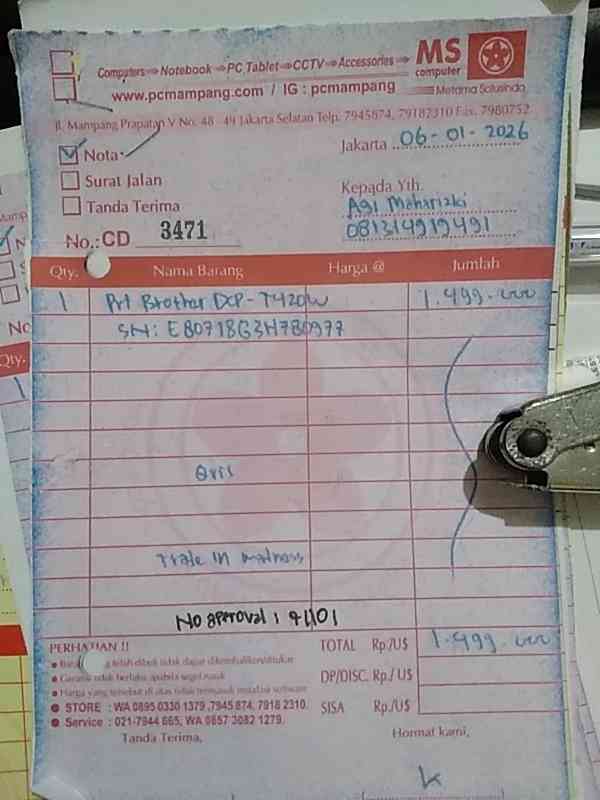 Computers⇒Notebook⇒PC Tablet⇒CCTV⇒Accessories⇒
MS
computer
www.pcmampang.com / IG : pcmampang
Metama Solusindo
Jl. Mampang Prapatan V No. 48 - 49 Jakarta Selatan Telp. 7945874, 79182310 Fax. 7980752
Nota
Jakarta 06-01-2026
Surat Jalan
Kepada Yth.
Tanda Terima
Agi Maharizki
081314919491
No.: CD 3471
Qty. Nama Barang Harga @ Jumlah
1 Prt Brother DCP-T420W 1.499.000
SN: E80718G3H780977
Qris
Trade In
No approval : 91101
PERHATIAN !!
TOTAL Rp./U$ 1.499.000
telah dibeli tidak dapat dikembalikan/ditukar
Garansi tidak berlaku apabila segel rusak
DP/DISC. Rp./U$
Harga yang tersebut di atas tidak termasuk instalasi software
STORE : WA 0895 0330 1379 ,7945 874, 7918 2310.
SISA Rp./U$
Service : 021-7944 665, WA 0857 3082 1279.
Tanda Terima,
Hormat kami,